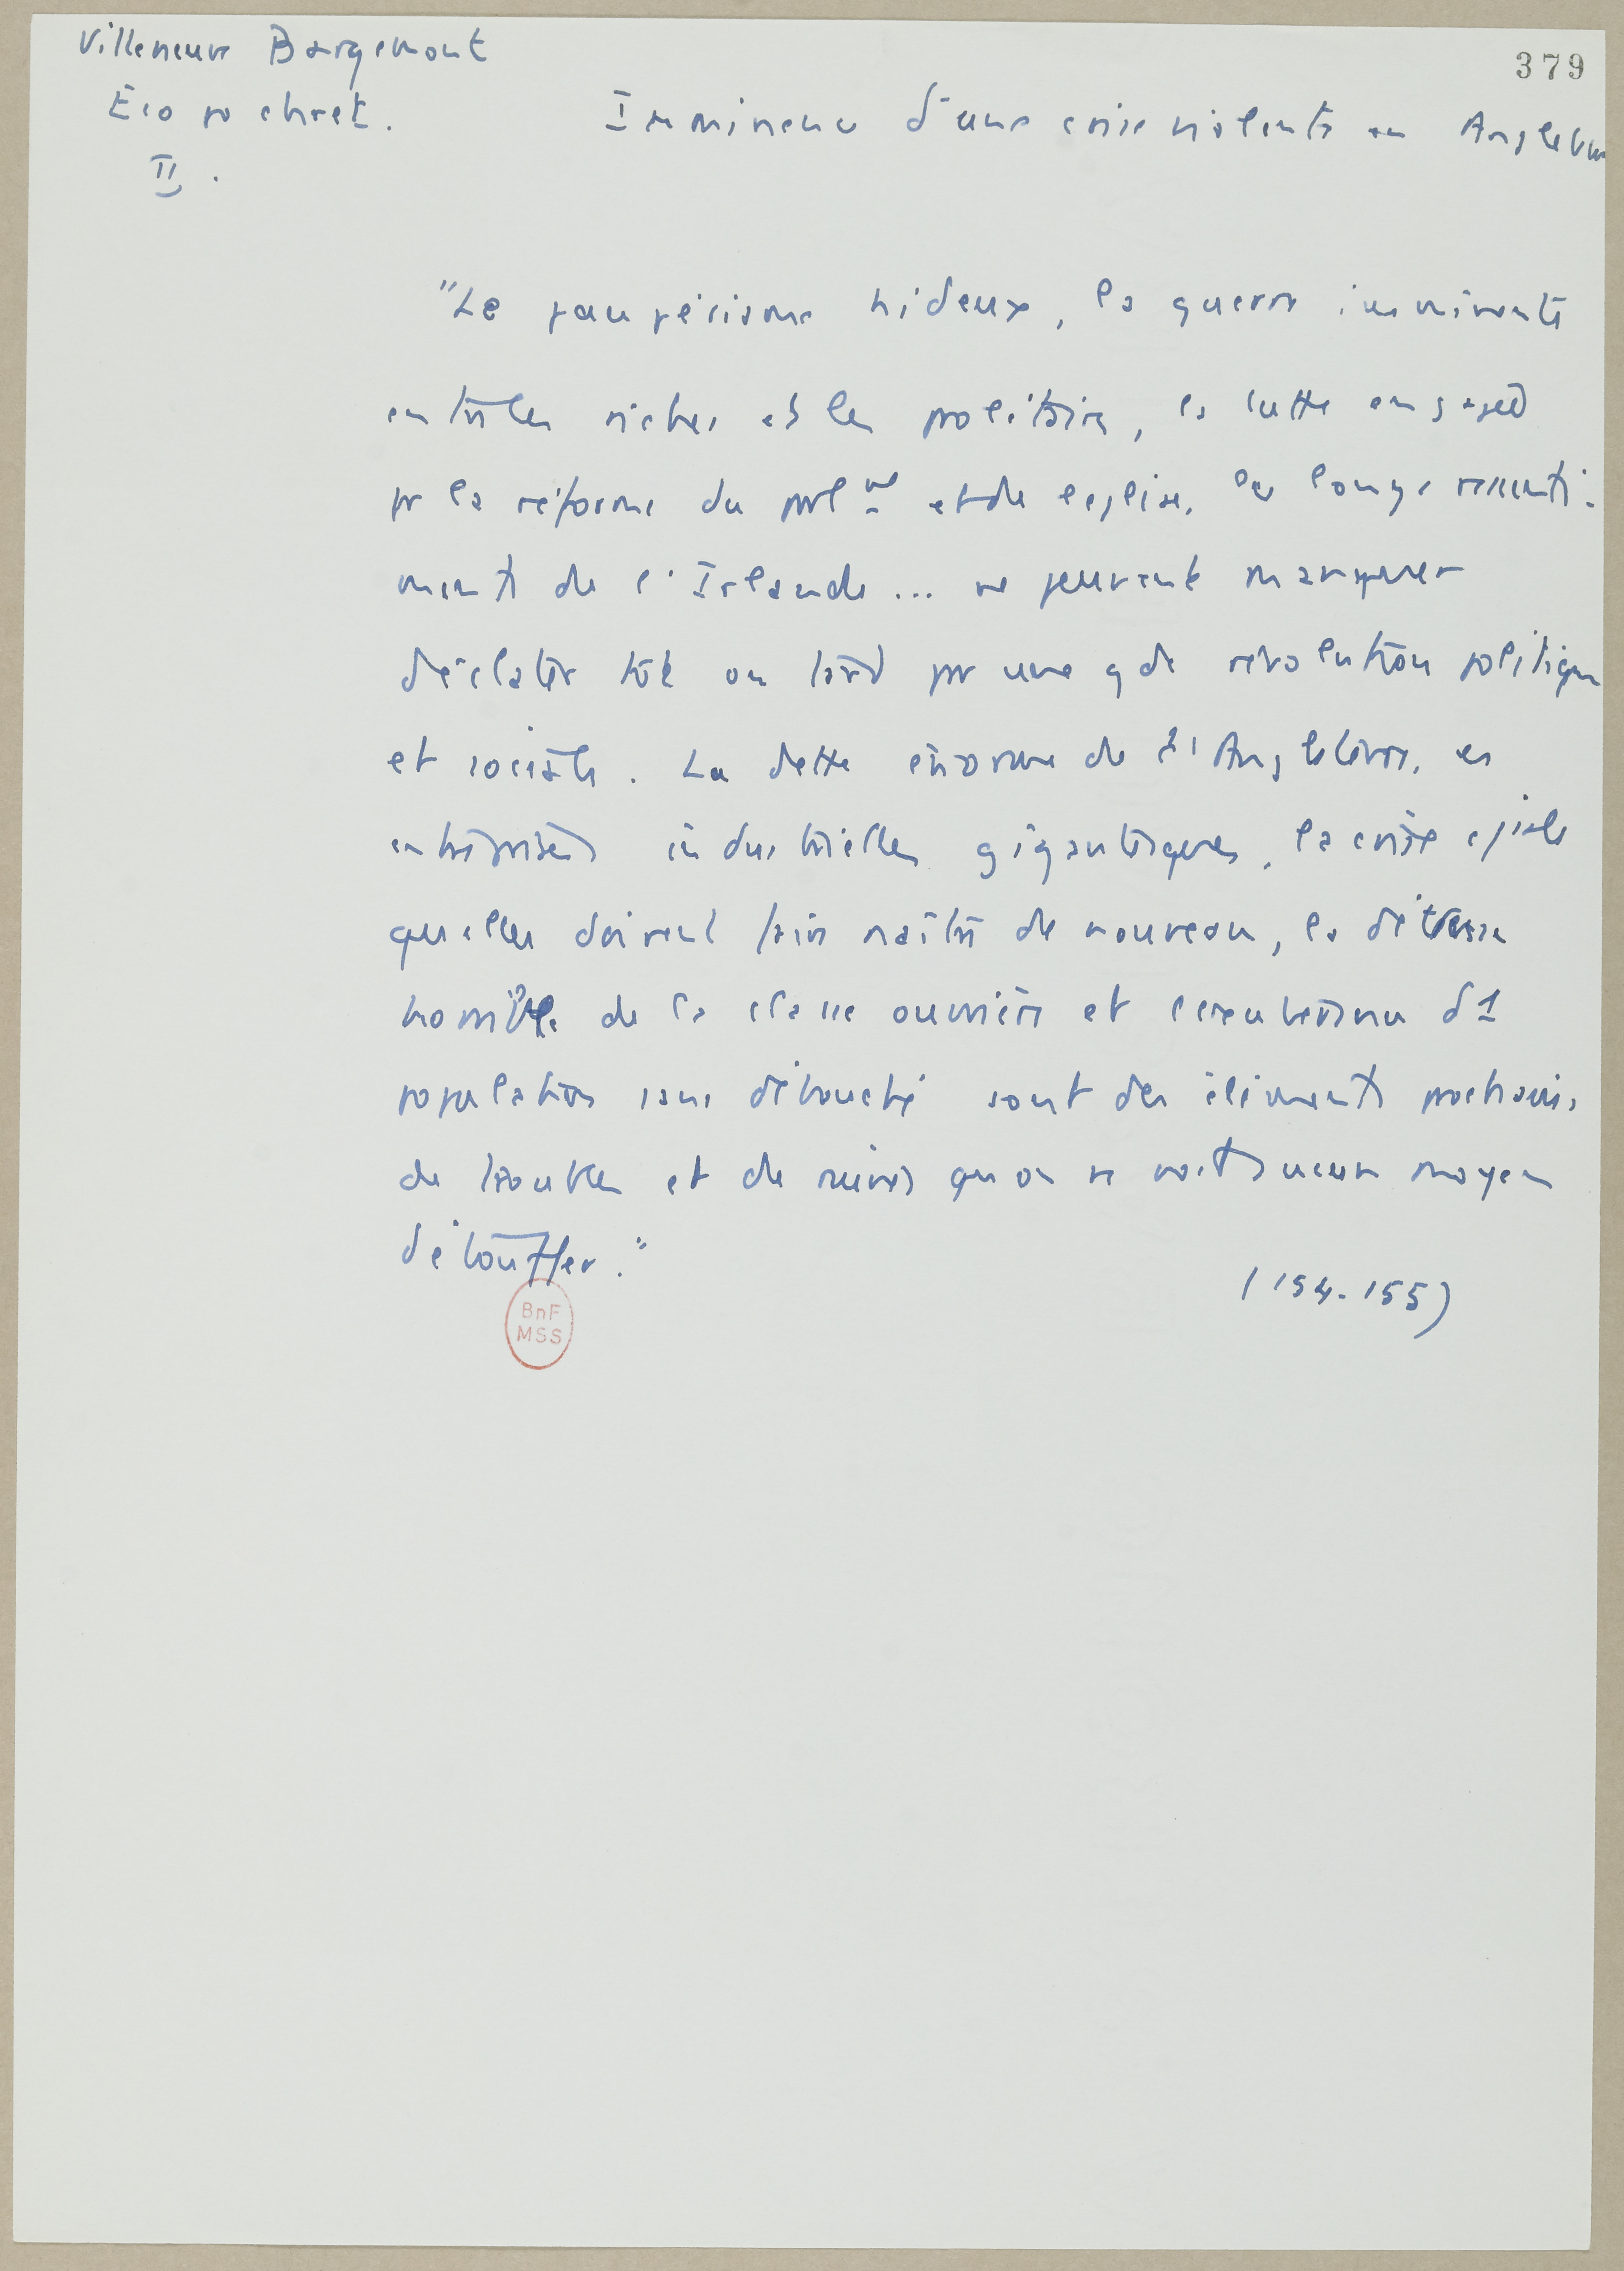 Villeneuve Bargemont
379
Eco po chret.
Imminence d'une crise violente en Angleterre
II.
"Le paupérisme hideux, la guerre imminente
entre les riches et les prolétaires, la lutte engagée
pr la réforme du prl et de l'eglise, les longs ressenti-
ments de l'Irlande... ne peuvent manquer
d'éclater tôt ou tard pr une gde révolution politique
et sociale. La dette énorme de l'Angleterre, les
entreprises industrielles gigantesques, la crise
qu'elles doivent faire naître de nouveau, la détresse
horrible de la classe ouvrière et d1
population sans débouché sont des éléments prochains
de troubles et de ruines qu'on ne voit aucun moyen
d'étouffer."
(154-155)
BnF
MSS